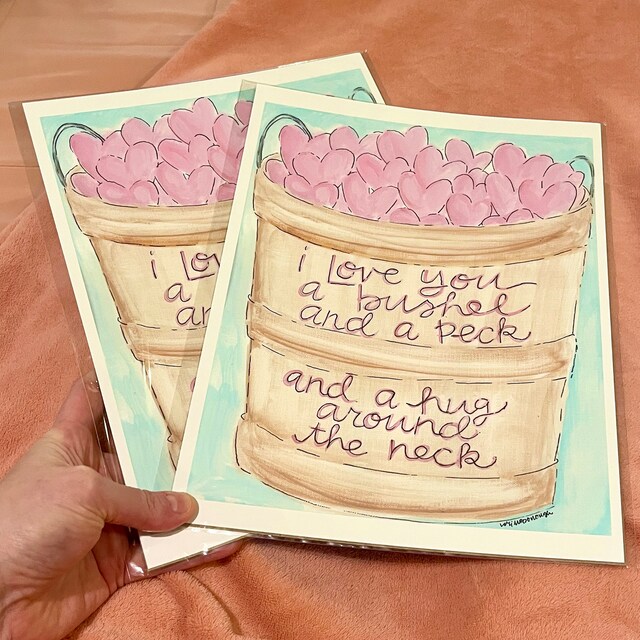 i Lo
a
an
i Love you
a bushel
and a peck
and a hug
around
the neck